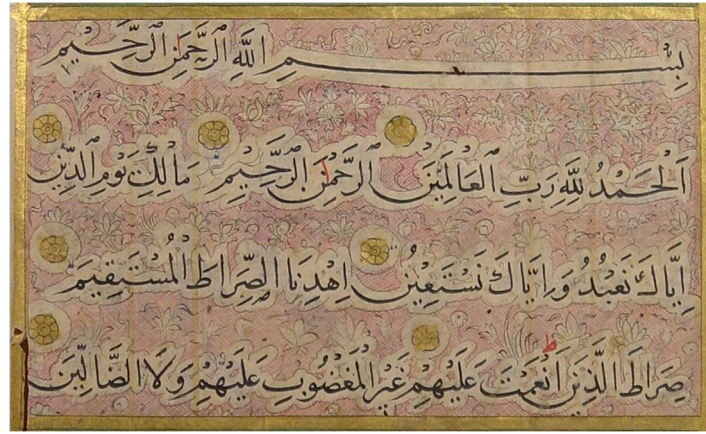 بِسْمِ اللَّهِ الرَّحْمَنِ الرَّحِيمِ
اَلْحَمْدُ لِلَّهِ رَبِّ الْعَالَمِينَ الرَّحْمَنِ الرَّحِيمِ مَالِكِ يَوْمِ الدِّينِ
اِيَّاكَ نَعْبُدُ وَاِيَّاكَ نَسْتَعِينُ اِهْدِنَا الصِّرَاطَ الْمُسْتَقِيمَ
صِرَاطَ الَّذِينَ اَنْعَمْتَ عَلَيْهِمْ غَيْرِ الْمَغْضُوبِ عَلَيْهِمْ وَلَا الضَّالِّينَ